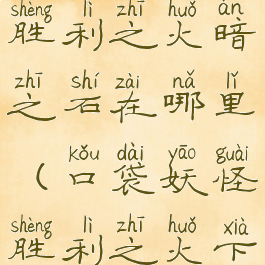 shèng lì zhī huǒ àn
胜利之火暗
zhī shí zài nǎ lǐ
之石在哪里
kǒu dài yāo guài
（口袋妖怪
shèng lì zhī huǒ xià
胜利之火下